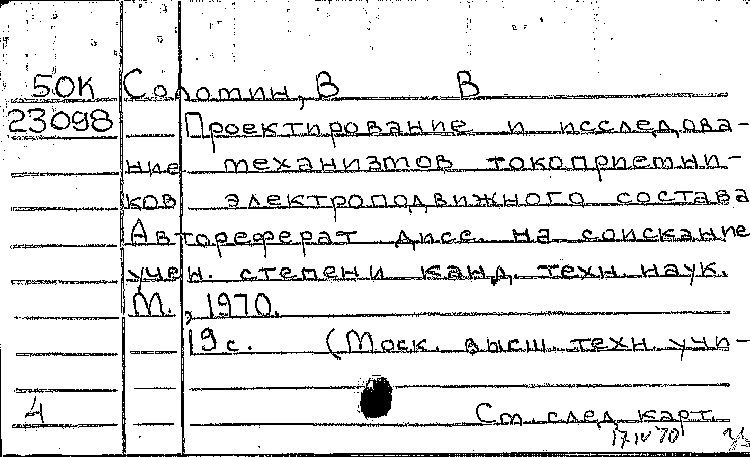 50К Соломин, В В
23098 Проектирование и исследова-
ние механизмов токоприемни-
ков электроподвижного состава
Автореферат дисс. на соискание
учен. степени канд. техн. наук.
М., 1970.
19 с. (Моск. высш. техн. учи-
4 См. след. карт.
17 IV 70